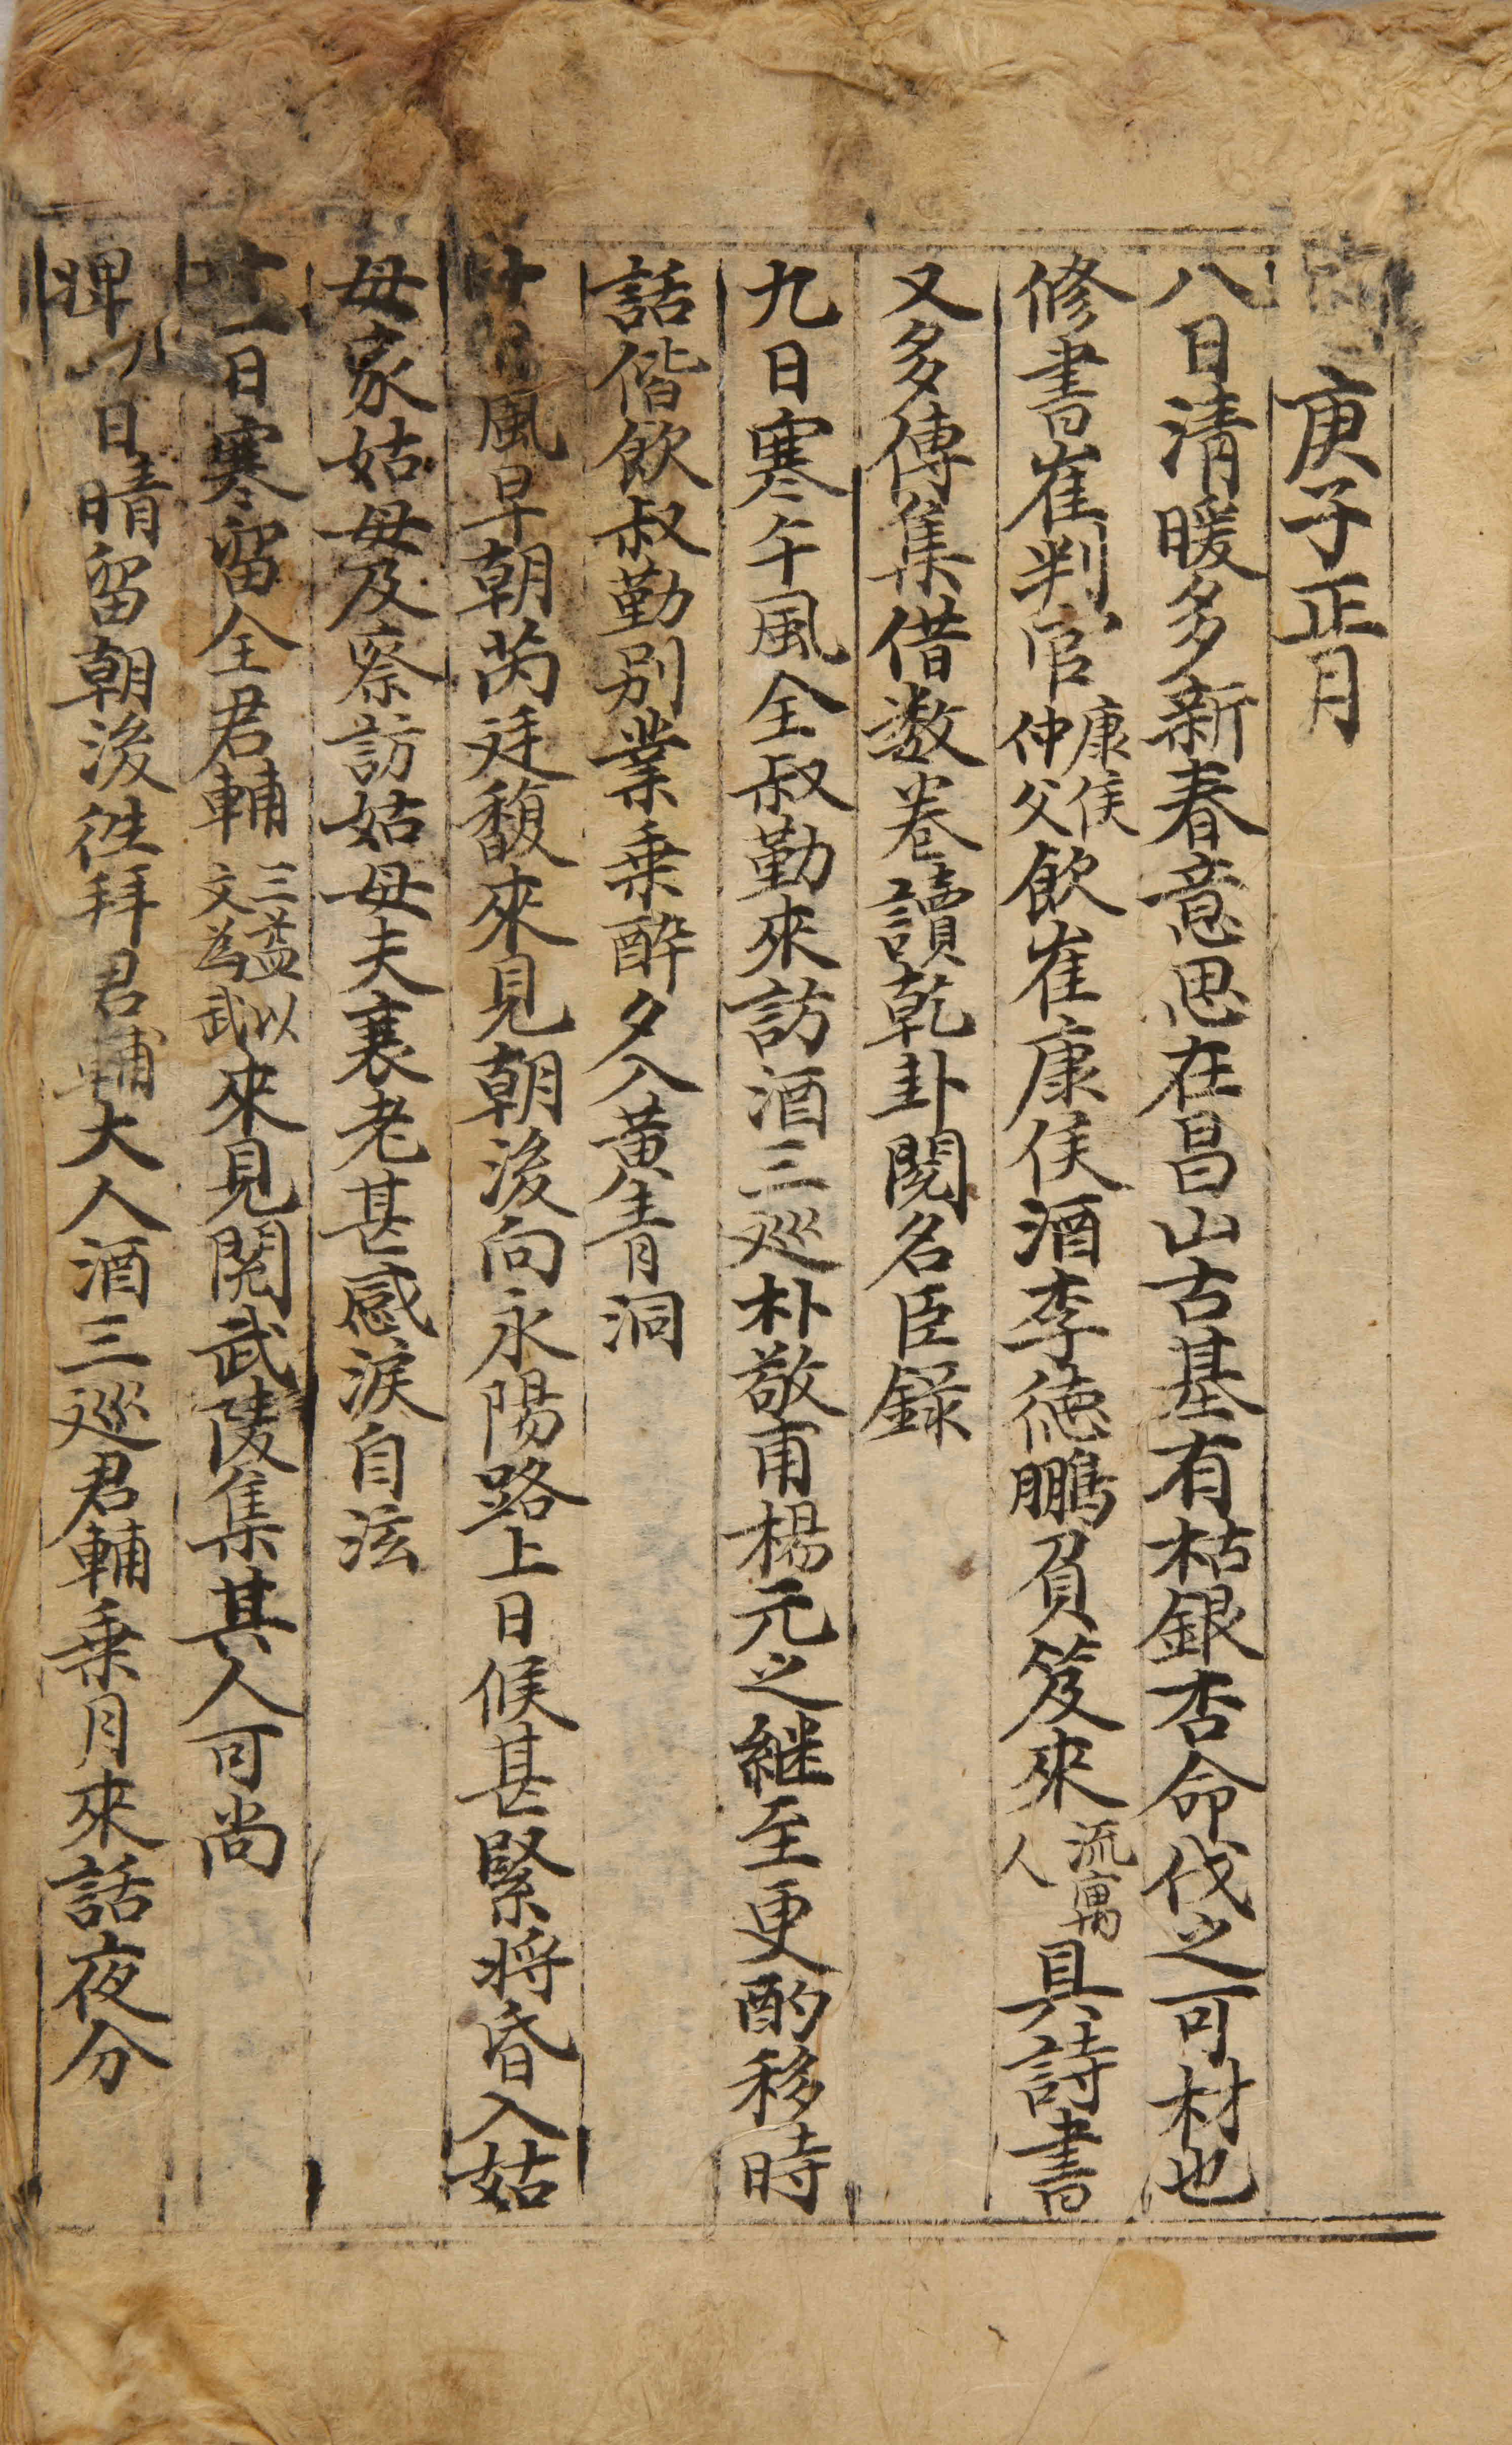 庚子正月
八日清暖多新春意思在昌山古基有枯銀杏命伐之可材也
修書崔判官康侯仲父飲崔康侯酒李德鵬負笈來流寓人具詩書
又多傳集借数卷讀乾卦閱名臣錄
九日寒午風全叔勤來訪酒三巡朴敬甫楊元之継至更酌移時
話偕飲叔勤別業乗醉夕入黃青洞
十日風早朝芮廷馥來見朝後向永陽路上日候甚緊将昏入姑
母家姑母及察訪姑母夫衰老甚感淚自泫
十一日寒留全君輔三益以文為武來見閱武陵集其人可尚
日晴留朝後徃拜君輔大人酒三巡君輔乗月來話夜分